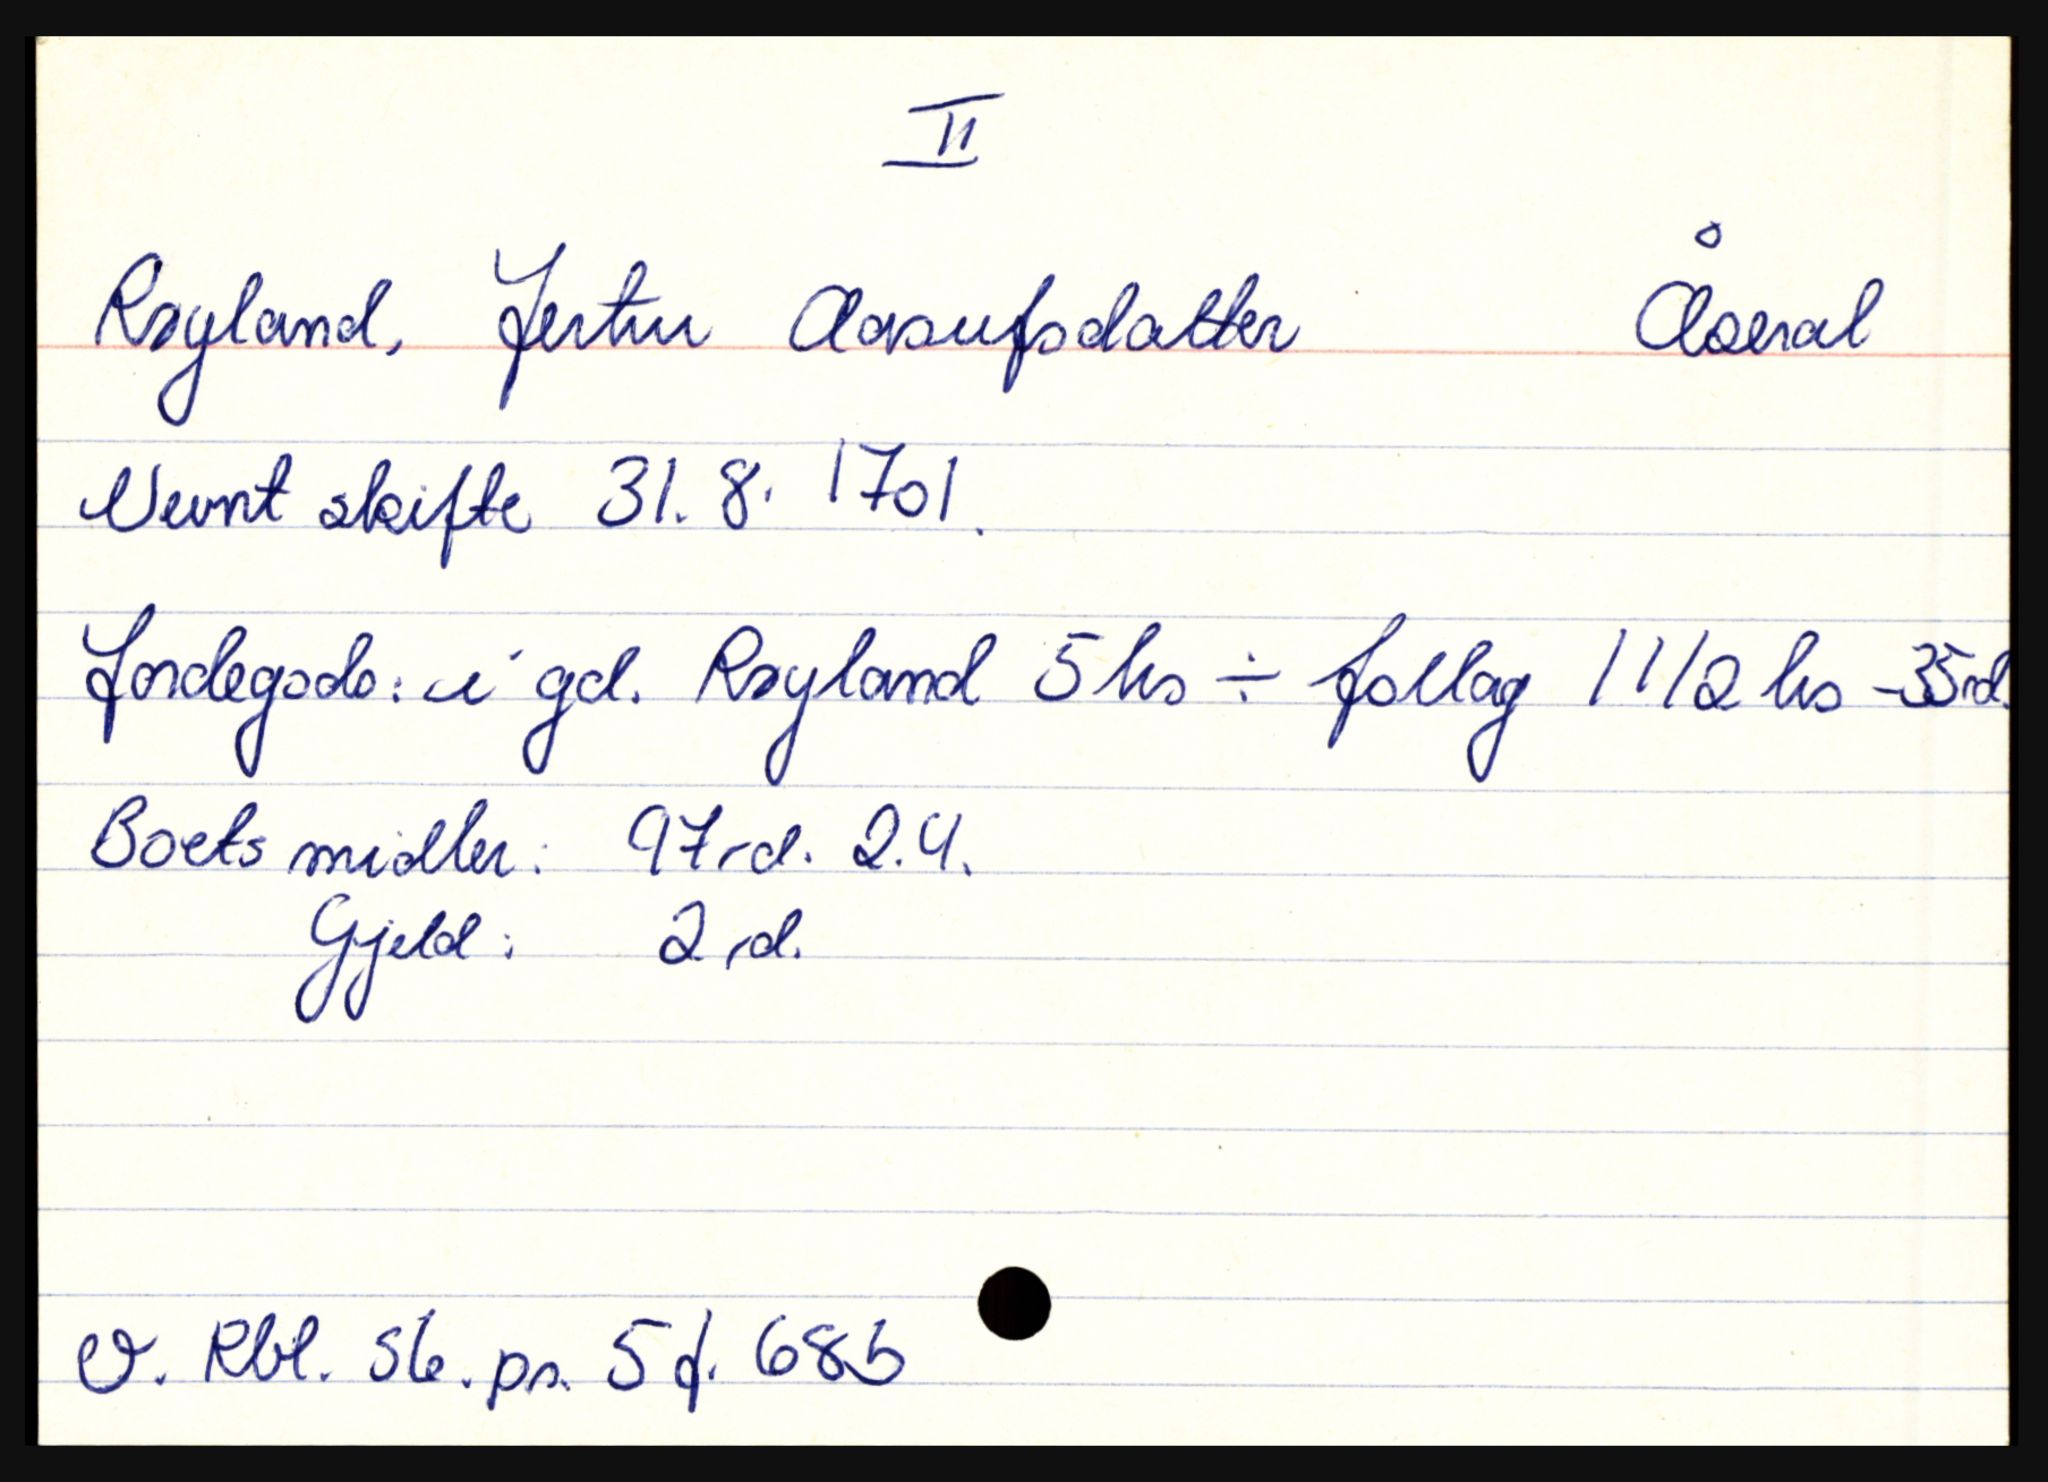 II
Røyland, Jertru Aasufsdatter Åseral
Nevnt skifte 31. 8. 1701.
Jordegods: i gd. Røyland 5 hs ÷ follag 1 1/2 hs - 35 rd.
Boets midler: 97 rd. 2.4.
Gjeld: 2 rd.
V. Rbl. Sk. pr. 5 f. 68b